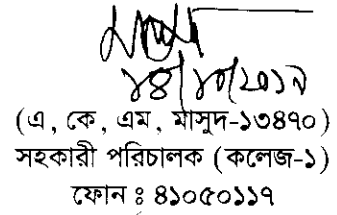 ১৪/১০/২০১৯
(এ, কে, এম, মাসুদ-১৩৪৭০)
সহকারী পরিচালক (কলেজ-১)
ফোন ঃ ৪১০৫০১১৭